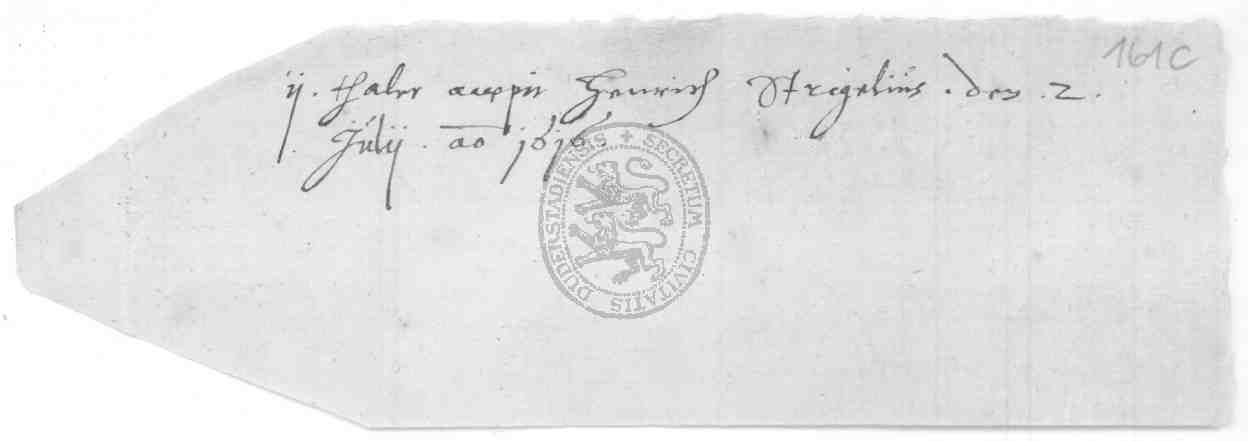 161c
ij. thaler accepit Henrich Strigelius. den .2.
Julij. ao 1616
SECRETUM CIVITATIS DUDERSTADIENSIS +